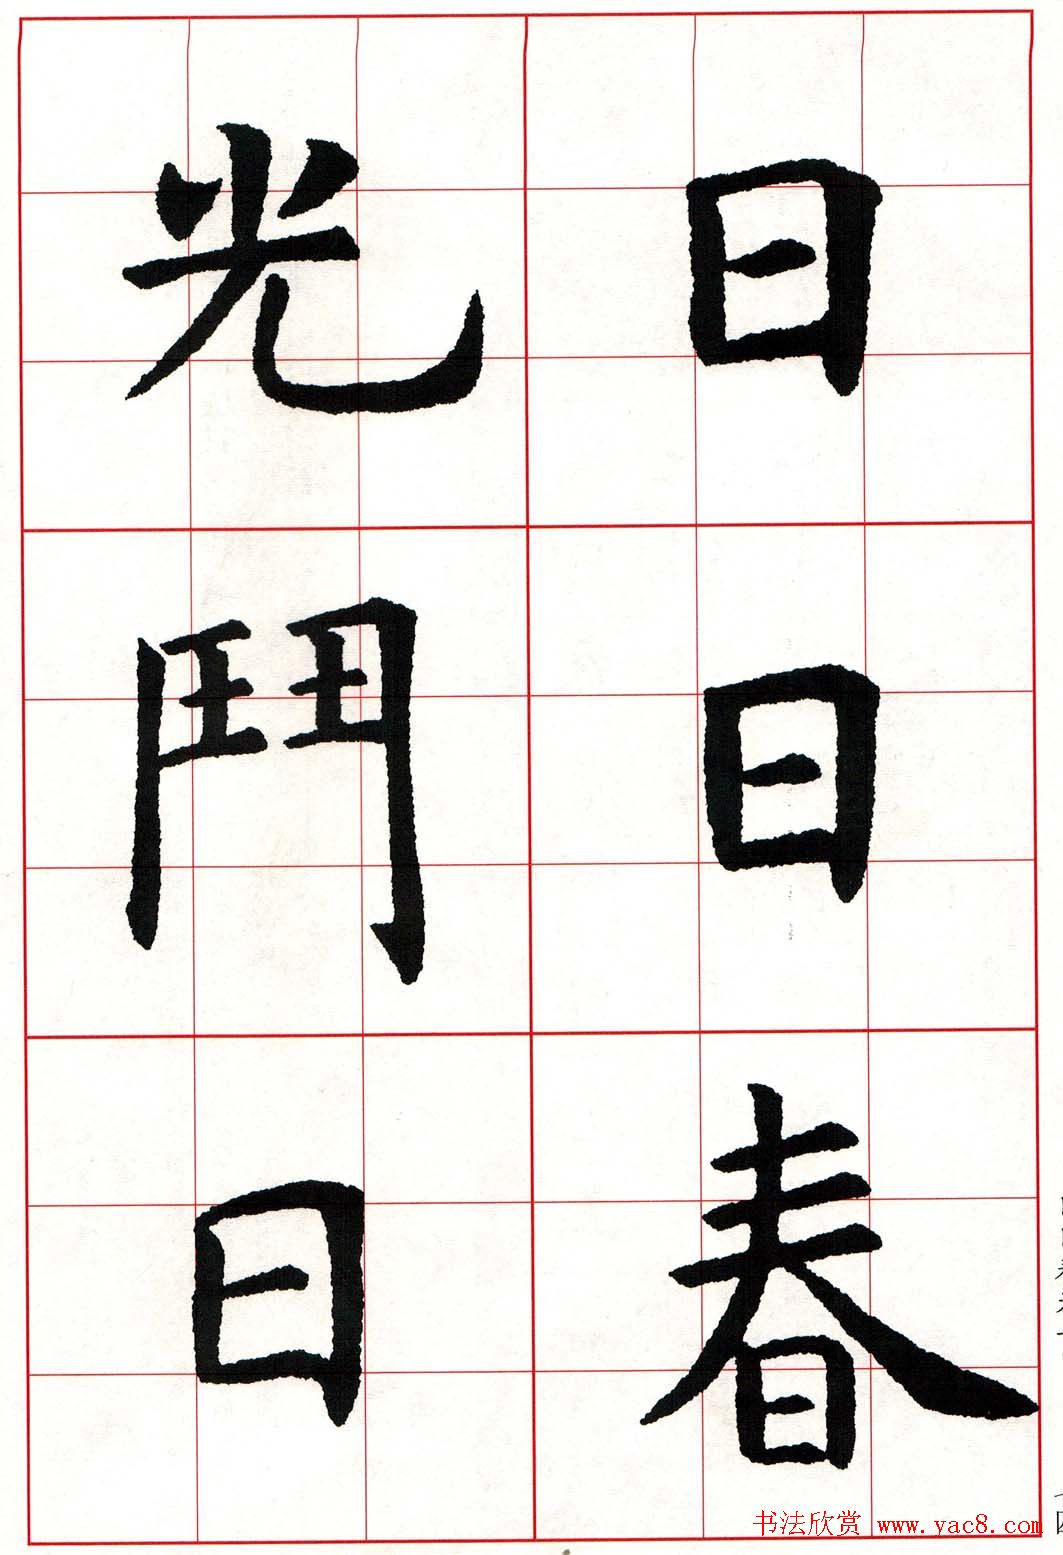 日日春
光鬥日
书法欣赏 www.yac8.com